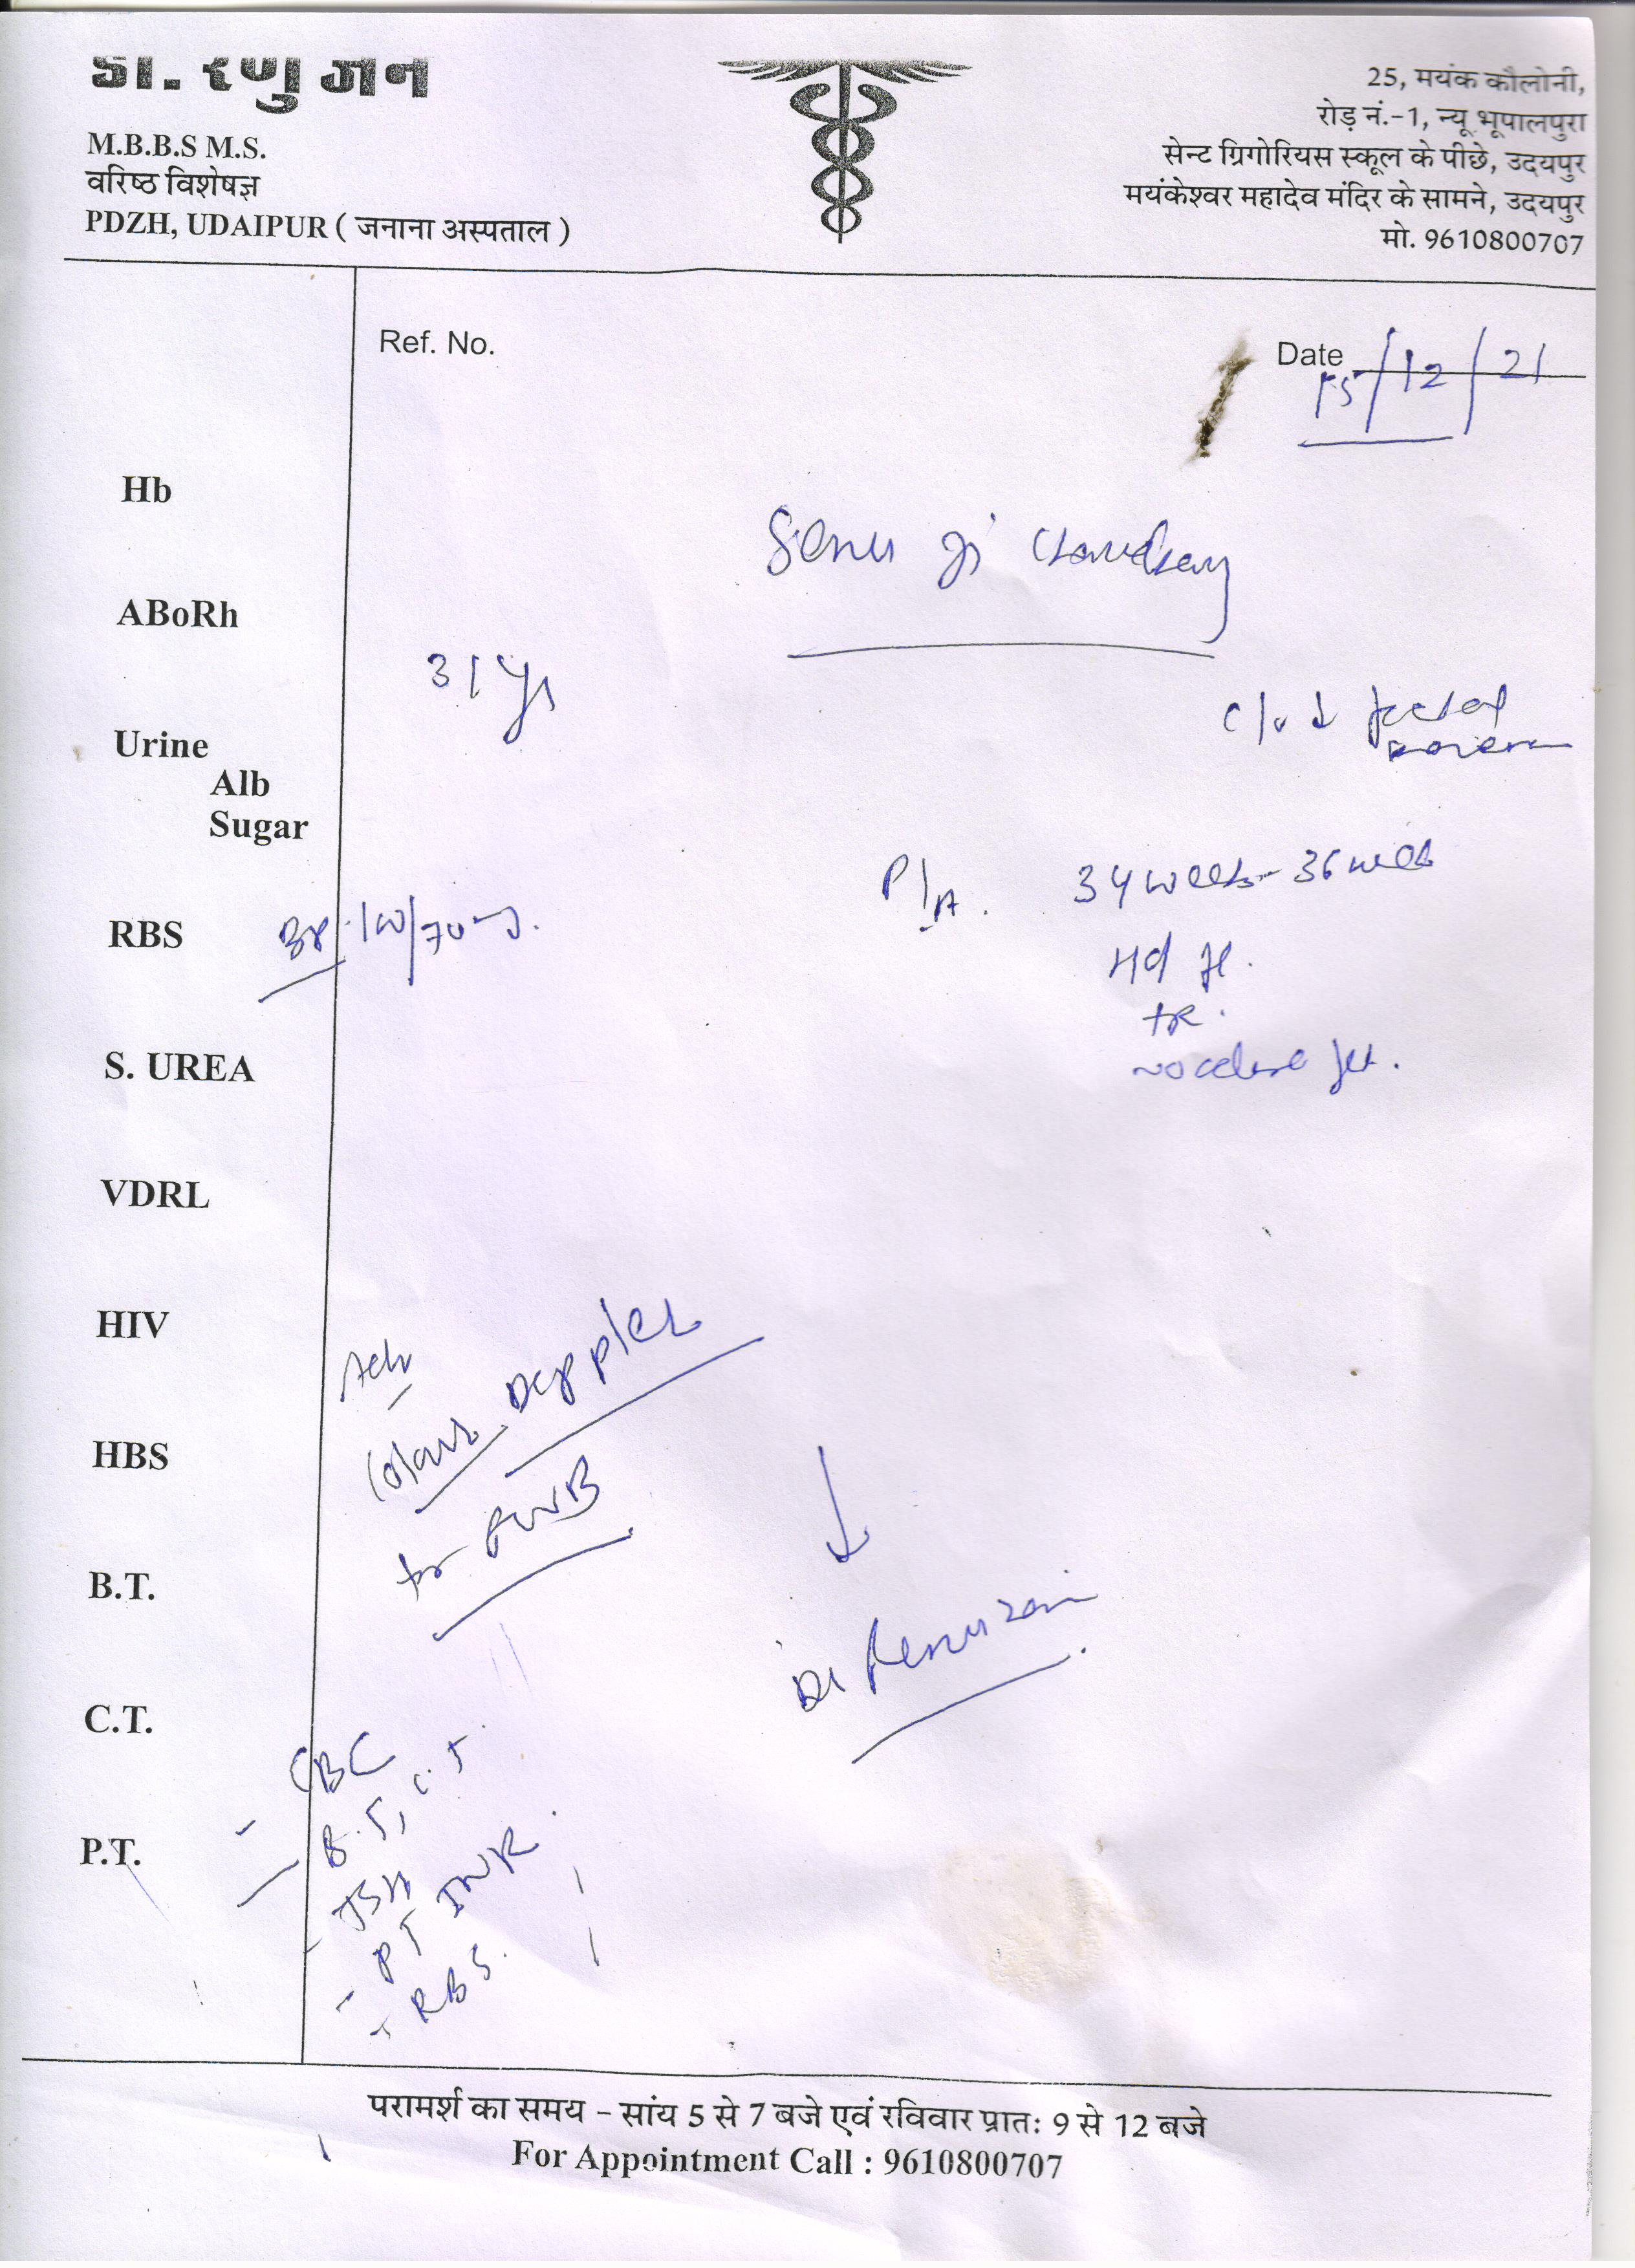 डा. रेणु जैन
M.B.B.S M.S.
वरिष्ठ विशेषज्ञ
PDZH, UDAIPUR ( जनाना अस्पताल )
25, मयंक कौलोनी,
रोड़ नं.-1, न्यू भूपालपुरा
सेन्ट ग्रिगोरियस स्कूल के पीछे, उदयपुर
मयंकेश्वर महादेव मंदिर के सामने, उदयपुर
मो. 9610800707
Ref. No.
Date 15/12/21
Hb
ABoRh
Urine
Alb
Sugar
RBS
S. UREA
VDRL
HIV
HBS
B.T.
C.T.
P.T.
Sonu ji Choudhary
31 Yrs
c/o ↓ foetal
P/A. 34 weeks - 36 weeks
BP
Adv
Colour Doppler
for FWB
↓
Dr Renu Jain
- CBC
- B.T, C.T.
- TSH
- PT INR
- RBS.
परामर्श का समय – सांय 5 से 7 बजे एवं रविवार प्रातः 9 से 12 बजे
For Appointment Call : 9610800707